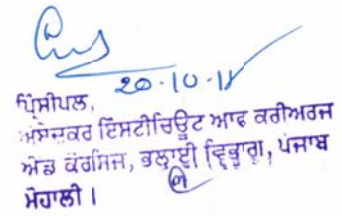 20-10-11
ਪ੍ਰਿੰਸੀਪਲ,
ਅੰਬੇਦਕਰ ਇੰਸਟੀਚਿਊਟ ਆਫ ਕਰੀਅਰਜ
ਐਂਡ ਕੋਰਸਿਜ, ਭਲਾਈ ਵਿਭਾਗ, ਪੰਜਾਬ
ਮੋਹਾਲੀ ।